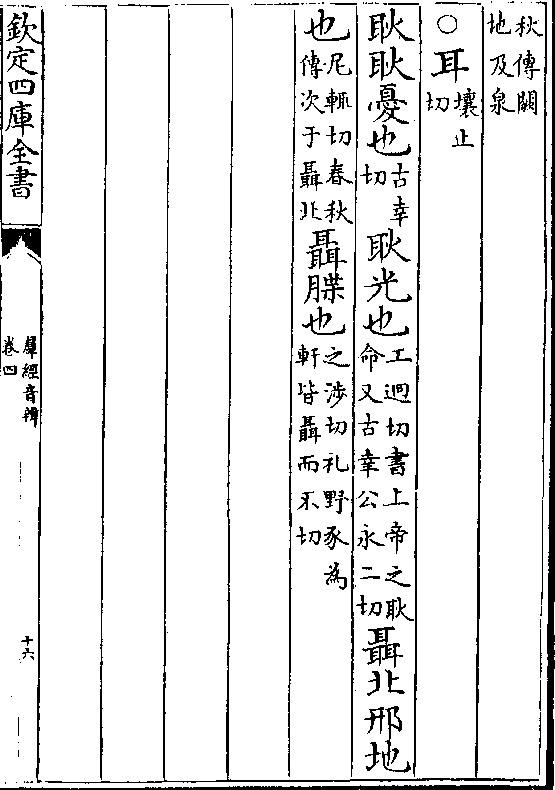 秋傳闕地及泉
○耳壤止切
耿耿憂也古幸切耿光也工迥切書上帝之耿命又古幸公永二切聶北邢地
也尼輒切春秋傳次于聶北聶䐑也之涉切礼野豕為軒皆聶而不切
欽定四庫全書
羣經音辨
卷四
十六